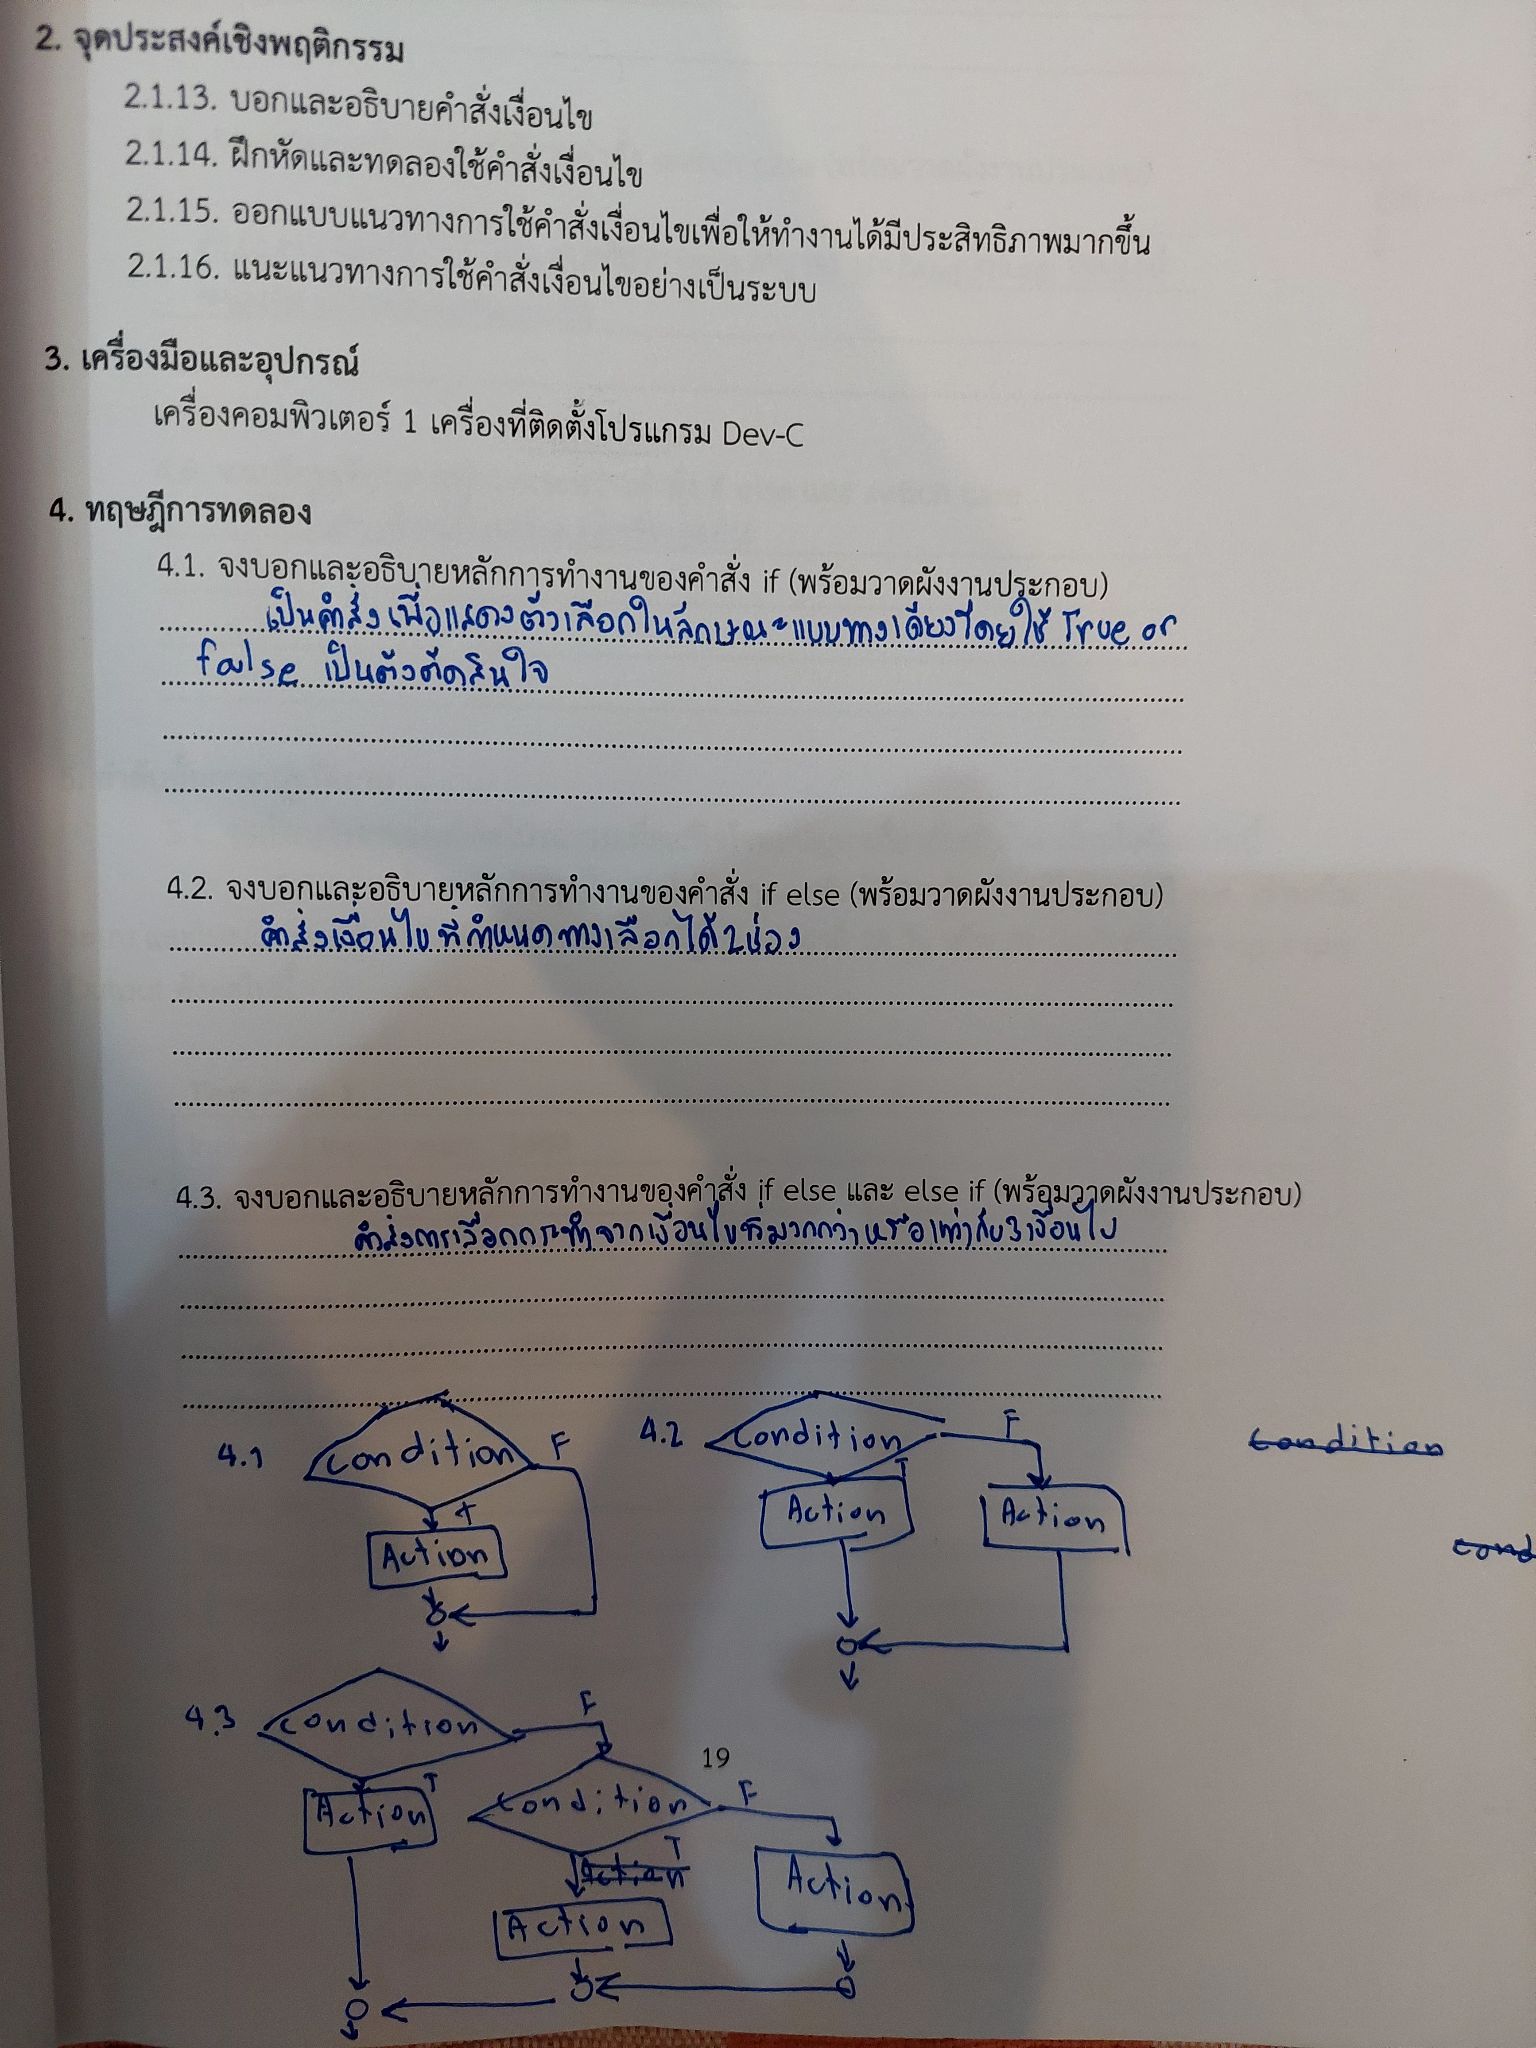 2. จุดประสงค์เชิงพฤติกรรม
2.1.13. บอกและอธิบายคำสั่งเงื่อนไข
2.1.14. ฝึกหัดและทดลองใช้คำสั่งเงื่อนไข
2.1.15. ออกแบบแนวทางการใช้คำสั่งเงื่อนไขเพื่อให้ทำงานได้มีประสิทธิภาพมากขึ้น
2.1.16. แนะแนวทางการใช้คำสั่งเงื่อนไขอย่างเป็นระบบ
3. เครื่องมือและอุปกรณ์
เครื่องคอมพิวเตอร์ 1 เครื่องที่ติดตั้งโปรแกรม Dev-C
4. ทฤษฎีการทดลอง
4.1. จงบอกและอธิบายหลักการทำงานของคำสั่ง if (พร้อมวาดผังงานประกอบ)
เป็นคำสั่งเพื่อแสดงตัวเลือกในลักษณะแบบทางเดียวโดยใช้ True or
false เป็นตัวตัดสินใจ
4.2. จงบอกและอธิบายหลักการทำงานของคำสั่ง if else (พร้อมวาดผังงานประกอบ)
คำสั่งเงื่อนไขที่กำหนดทางเลือกได้ 2 ช่อง
4.3. จงบอกและอธิบายหลักการทำงานของคำสั่ง if else และ else if (พร้อมวาดผังงานประกอบ)
คำสั่งการเลือกกระทำจากเงื่อนไขที่มากกว่าหรือเท่ากับ 3 เงื่อนไข
4.1 condition F
T
Action
4.2 condition F
T
Action Action
condition
cond
4.3 condition F
T
Action
19
condition F
T
Action
Action
Action